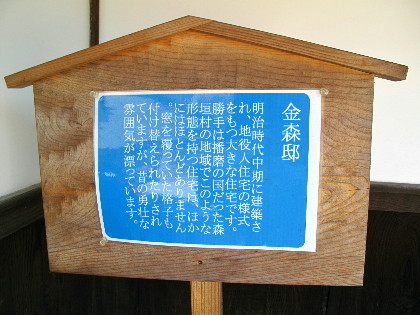 金森邸
明治時代中期に建築さ
れ、地役人住宅の様式
をもつ大きな住宅です。
勝手は播磨の国だった森
垣村の地域でこのような
形態を持つ住宅は、ほか
にはほとんどありません
。窓を覆っていた格子も
付け替えられたりされ
ていますが、昔の勇壮な
雰囲気が漂っています。